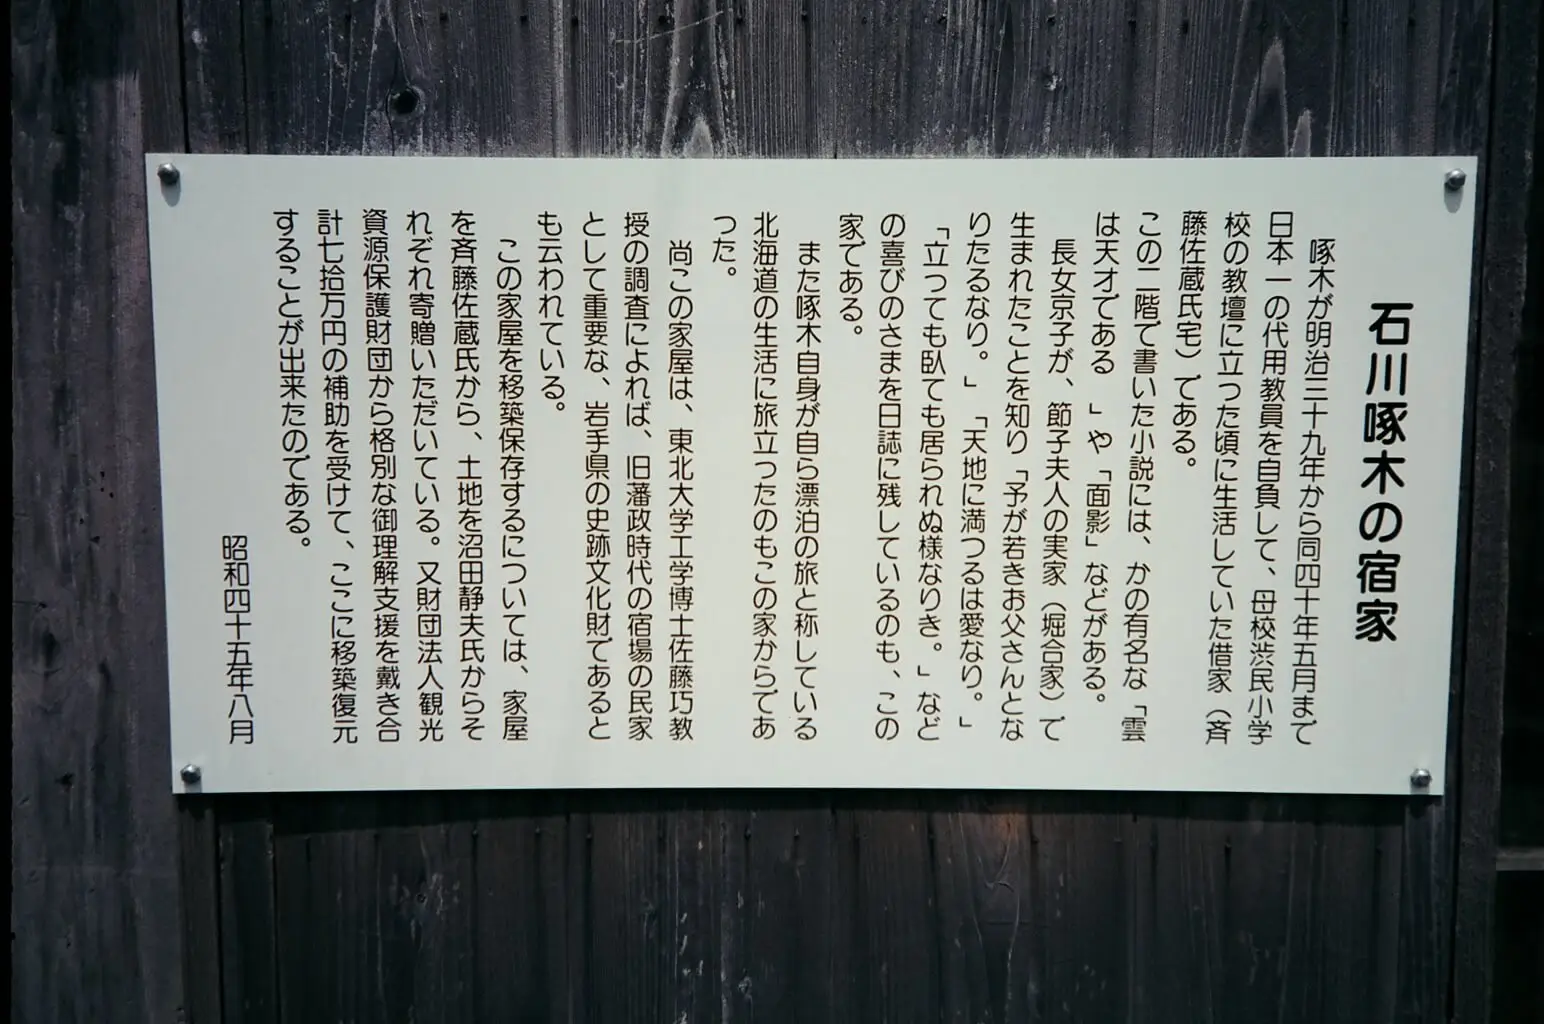 石川啄木の宿家
啄木が明治三十九年から同四十年五月まで
日本一の代用教員を自負して、母校渋民小学
校の教壇に立った頃に生活していた借家（斉
藤佐蔵氏宅）である。
この二階で書いた小説には、かの有名な「雲
は天才である　」や「面影」などがある。
長女京子が、節子夫人の実家（堀合家）で
生まれたことを知り「予が若きお父さんとな
りたるなり。」「天地に満つるは愛なり。」
「立っても臥ても居られぬ様なりき。」など
の喜びのさまを日誌に残しているのも、この
家である。
また啄木自身が自ら漂泊の旅と称している
北海道の生活に旅立ったのもこの家からであ
った。
尚この家屋は、東北大学工学博士佐藤巧教
授の調査によれば、旧藩政時代の宿場の民家
として重要な、岩手県の史跡文化財であると
も云われている。
この家屋を移築保存するについては、家屋
を斉藤佐蔵氏から、土地を沼田静夫氏からそ
れぞれ寄贈いただいている。又財団法人観光
資源保護財団から格別な御理解支援を戴き合
計七拾万円の補助を受けて、ここに移築復元
することが出来たのである。
昭和四十五年八月